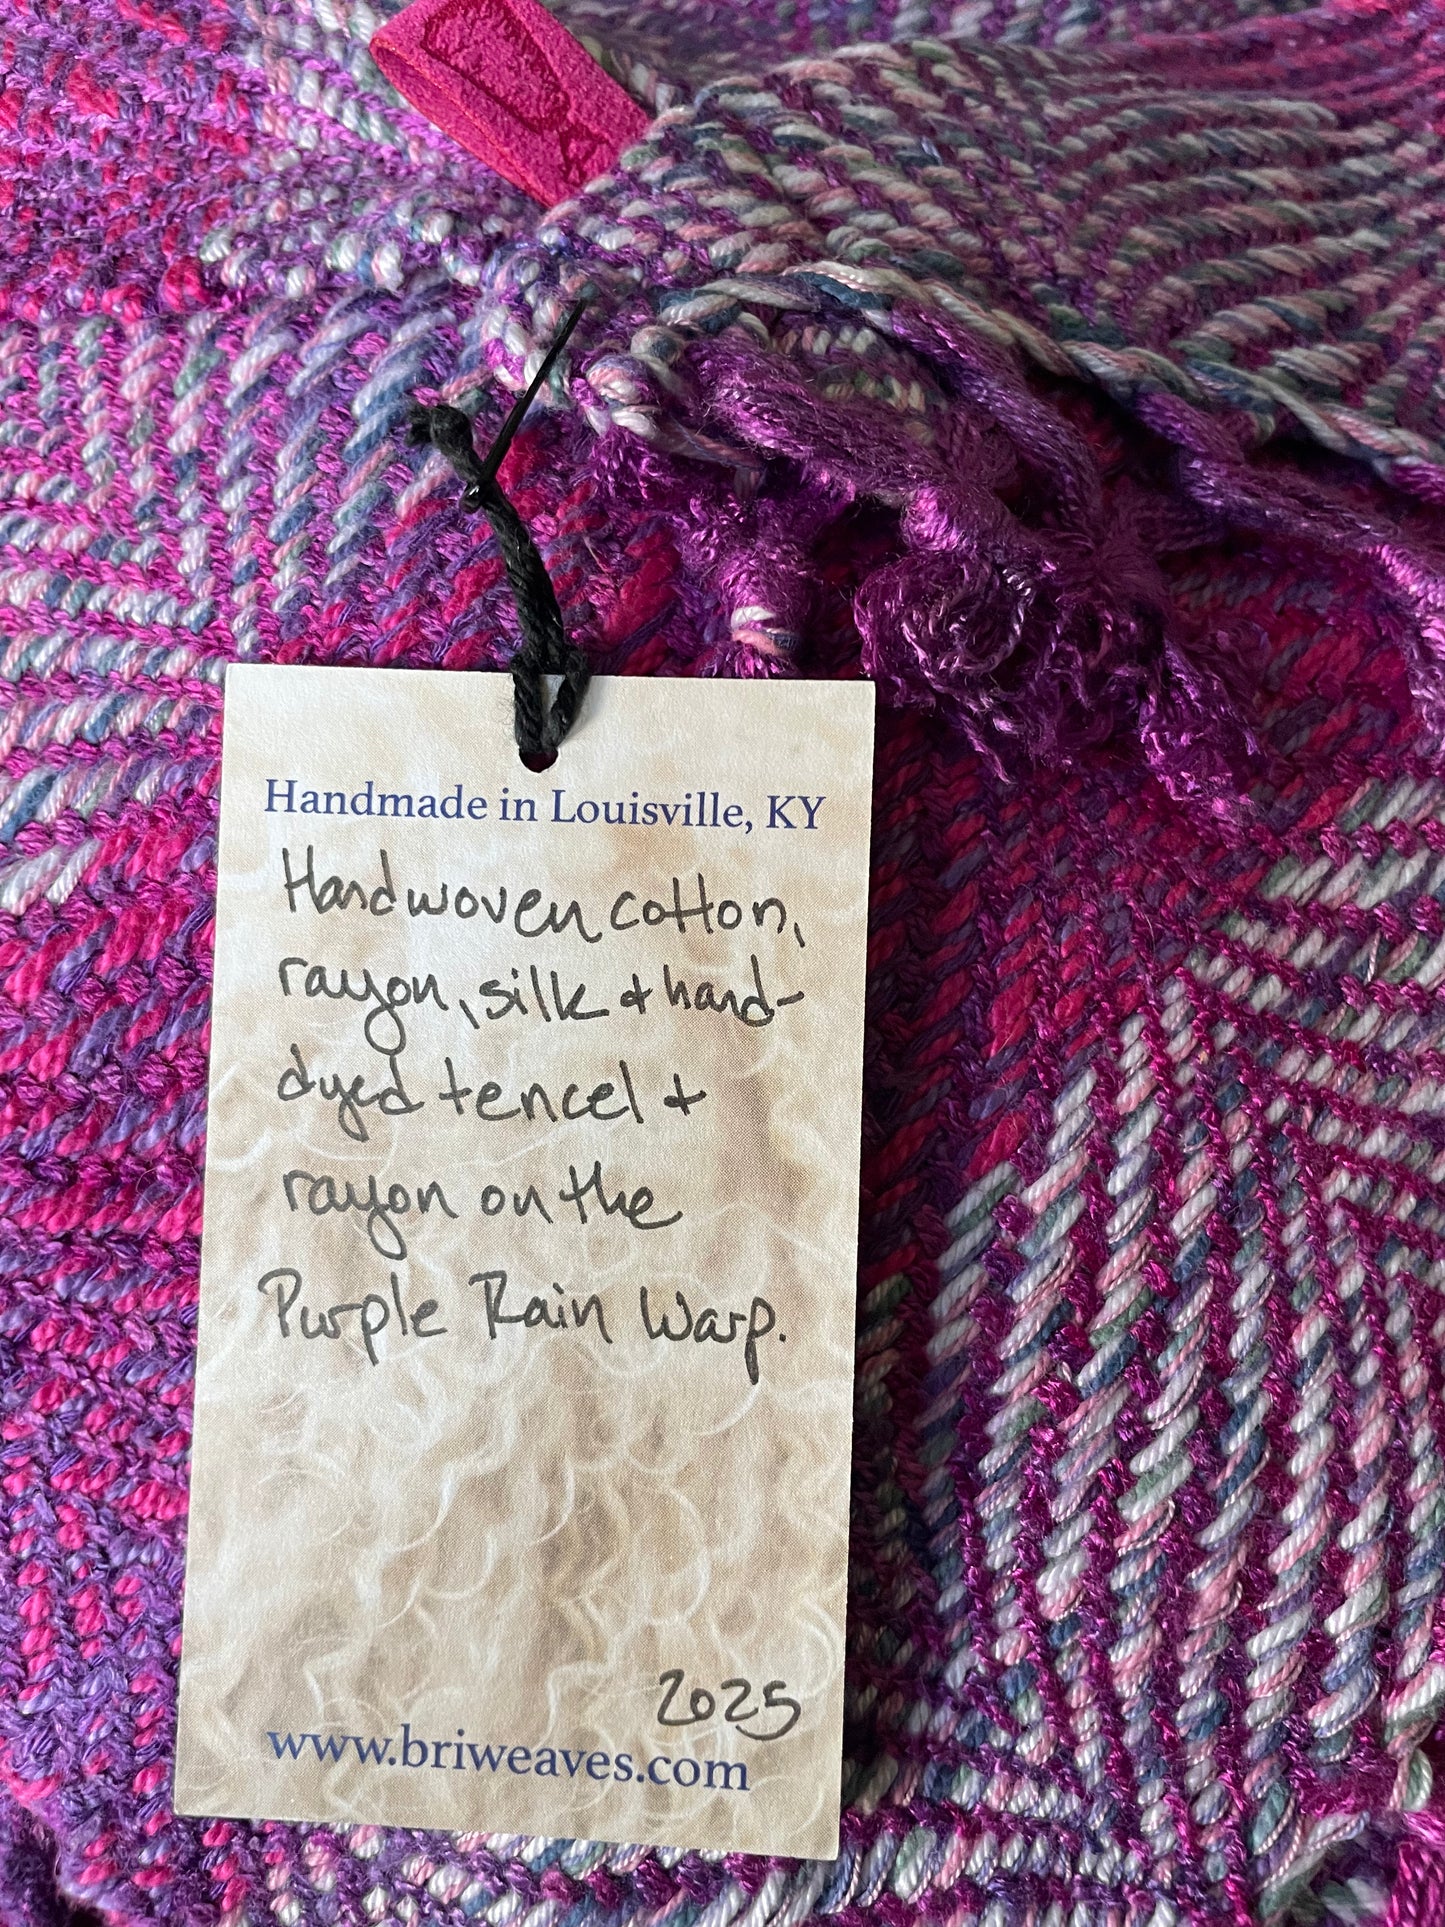 Handmade in Louisville, KY
Handwoven cotton,
rayon, silk + hand-
dyed tencel +
rayon on the
Purple Rain Warp.
2025
www.briweaves.com